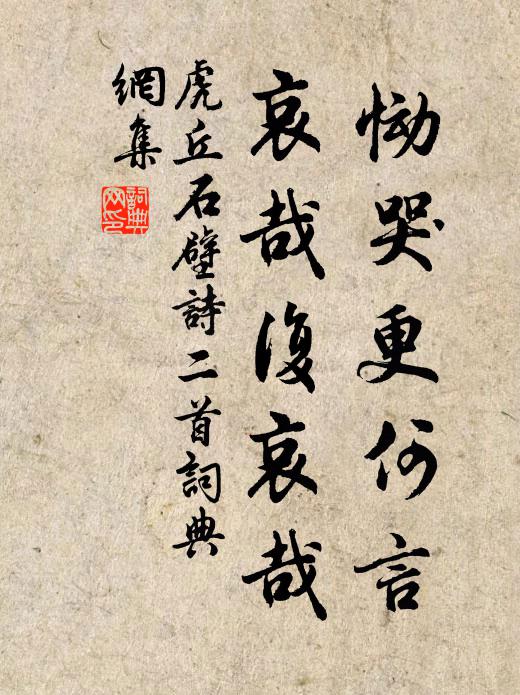 慟哭更何言
哀哉復哀哉
虎丘石壁詩二首詞典
網集
詞典
网印